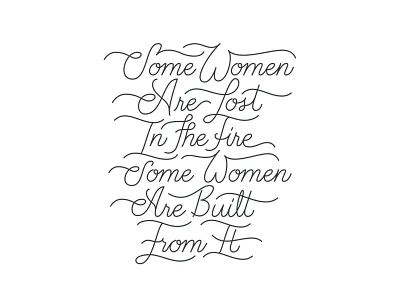 Some Women
Are Lost
In The Fire
Some Women
Are Built
From It